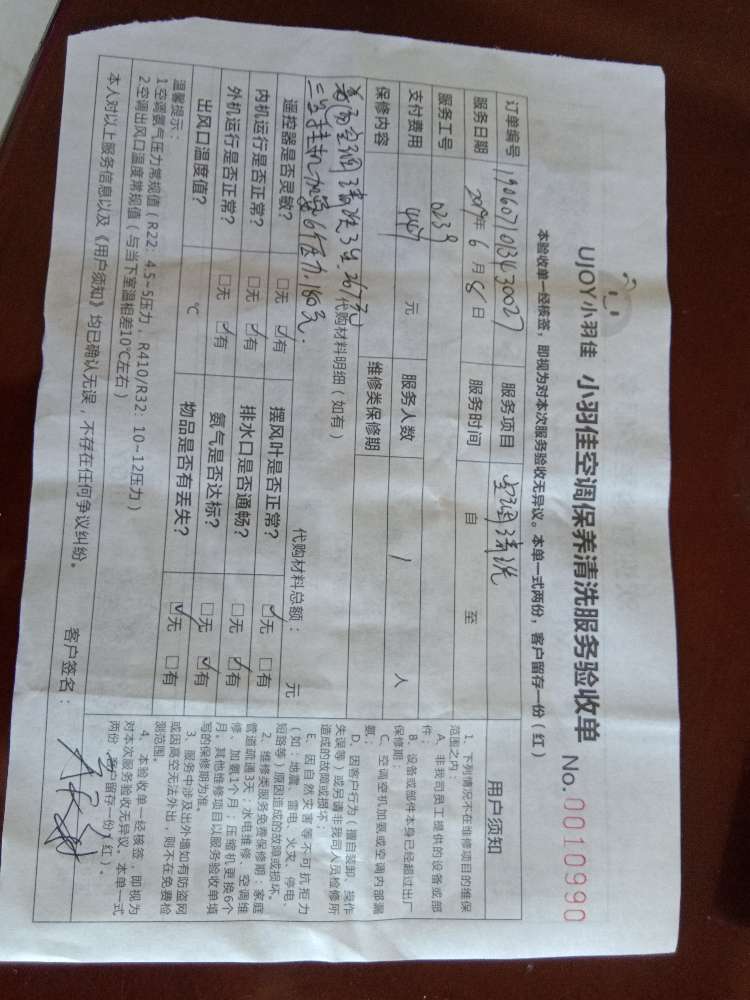 UJOY小羽佳 小羽佳空调保养清洗服务验收单 No. 0010990
本验收单一经核签，即视为对本次服务验收无异议。本单一式两份，客户留存一份（红）
订单编号 服务项目 空调清洗
服务日期 2019年 6 月 8 日 服务时间 自 至
服务工号 0239
支付费用 447 元 服务人数 / 人
保修内容 维修类保修期
代购材料明细（如有） 代购材料总额： 元
遥控器是否灵敏？ □无 ☑有 摆风叶是否正常？ ☑无 □有
内机运行是否正常？ □无 ☑有 排水口是否通畅？ □无 ☑有
外机运行是否正常？ □无 ☑有 氨气是否达标？ □无 ☑有
出风口温度值？ ℃ 物品是否有丢失？ ☑无 □有
温馨提示：
1空调氨气压力常规值（R22：4.5~5压力，R410/R32：10~12压力）
2空调出风口温度常规值（与当下室温相差10℃左右）
本人对以上服务信息以及《用户须知》均已确认无误，不存在任何争议纠纷。
客户签名：
用户须知
1、下列情况不在维修项目的维保
范围之内：
A、非我司员工提供的设备或部
件；
B、设备或部件本身已经超过出厂
保修期；
C、空调空机加氨或空调内部漏
氨；
D、因客户行为（擅自装卸、操作
失误等）或另请非我司人员检修所
造成的故障或损坏；
E、因自然灾害等不可抗拒力
（如：地震、雷电、火灾、停电、
短路等）原因造成的故障或损坏。
2、维修类服务免费保修期：家庭
管道疏通3天；水电维修、空调维
修、加氨1个月；压缩机更换6个
月，其他维修项目以服务验收单填
写的保修期为准。
3、服务中涉及出外墙如有防盗网
或因高空无法外出，则不在免费检
测范围。
4、本验收单一经核签，即视为
对本次服务验收无异议。本单一式
两份，客户留存一份（红）。